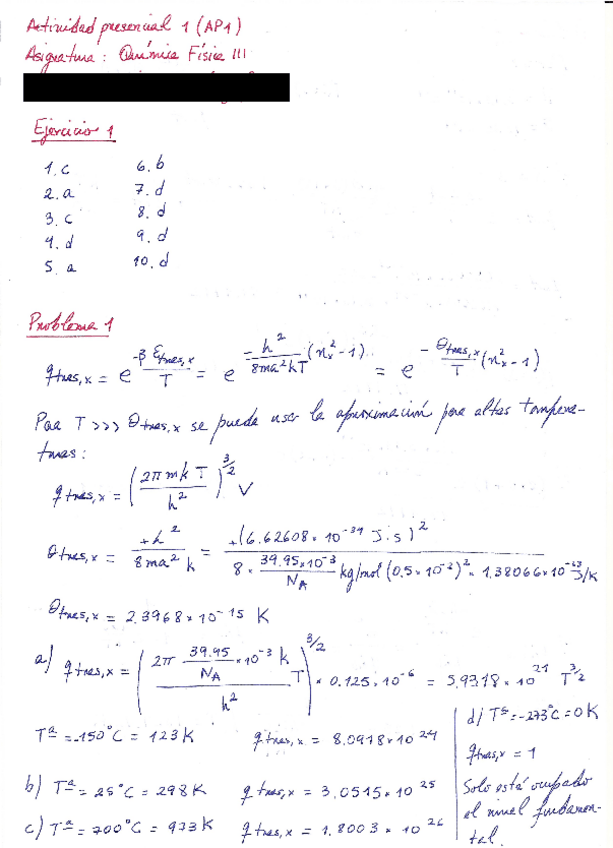 Actividad presencial 1 (AP1)
Asignatura: Química Física III
Ejercicio 1
1. c 6. b
2. a 7. d
3. c 8. d
4. d 9. d
5. a 10. d
Problema 1
q_tras,x = e^(-β ε_tras,x / T) = e^(-h²/(8ma²kT) (n_x² - 1)) = e^(-θ_tras,x/T (n_x² - 1))
Para T >>> θ_tras,x se puede usar la aproximación para altas tempera-
turas:
q_tras,x = (2π m k T / h²)^(3/2) V
θ_tras,x = +h² / (8ma² k) = +(6.62608·10⁻³⁴ J·s)² / (8 · 39.95×10⁻³/N_A kg/mol (0.5·10⁻²)² · 1.38066×10⁻²³ J/K)
θ_tras,x = 2.3968·10⁻¹⁵ K
a) q_tras,x = (2π 39.95/N_A ·10⁻³ k T / h²)^(3/2) · 0.125·10⁻⁶ = 5.9318·10²¹ T^(3/2)
Tª = -150°C = 123K q_tras,x = 8.0918×10²⁴
b) Tª = 25°C = 298K q_tras,x = 3.0515·10²⁵
c) Tª = 700°C = 973K q_tras,x = 1.8003 × 10²⁶
d) Tª = -273°C = 0K
q_tras,x = 1
Solo está ocupado
el nivel fundamen-
tal.